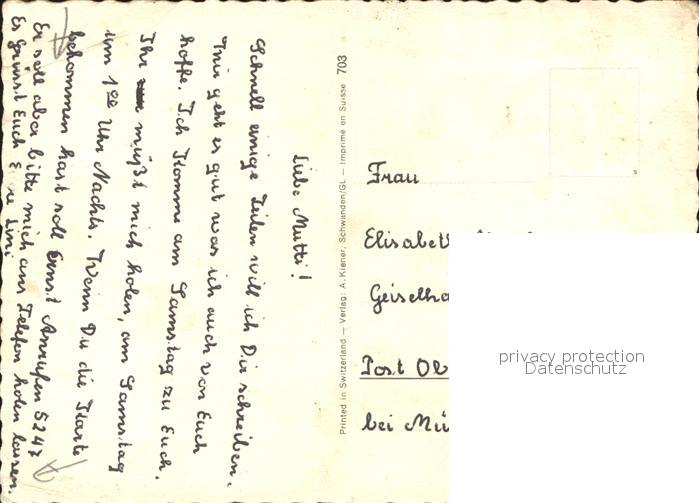 Liebe Mutti!
Schnell einige Zeilen will ich Dir schreiben.
Mir geht es gut was ich auch von Euch
hoffe. Ich komme am Samstag zu Euch.
Ihr müßt mich holen, am Samstag
um 1 00 Uhr Nachts. Wenn Du die Karte
bekommen hast soll Ernst Anrufen 5247
Er soll aber bitte mich ans Telefon holen lassen.
Es grüsst Euch Eure
Printed in Switzerland — Verlag: A. Kiener, Schwanden/Gl. — Imprimé en Suisse 703
Frau
Elisabeth
Geiselha
Post Ob
bei Mü
privacy protection
Datenschutz